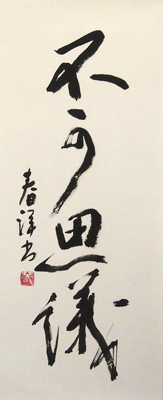 不可思議
春洋书